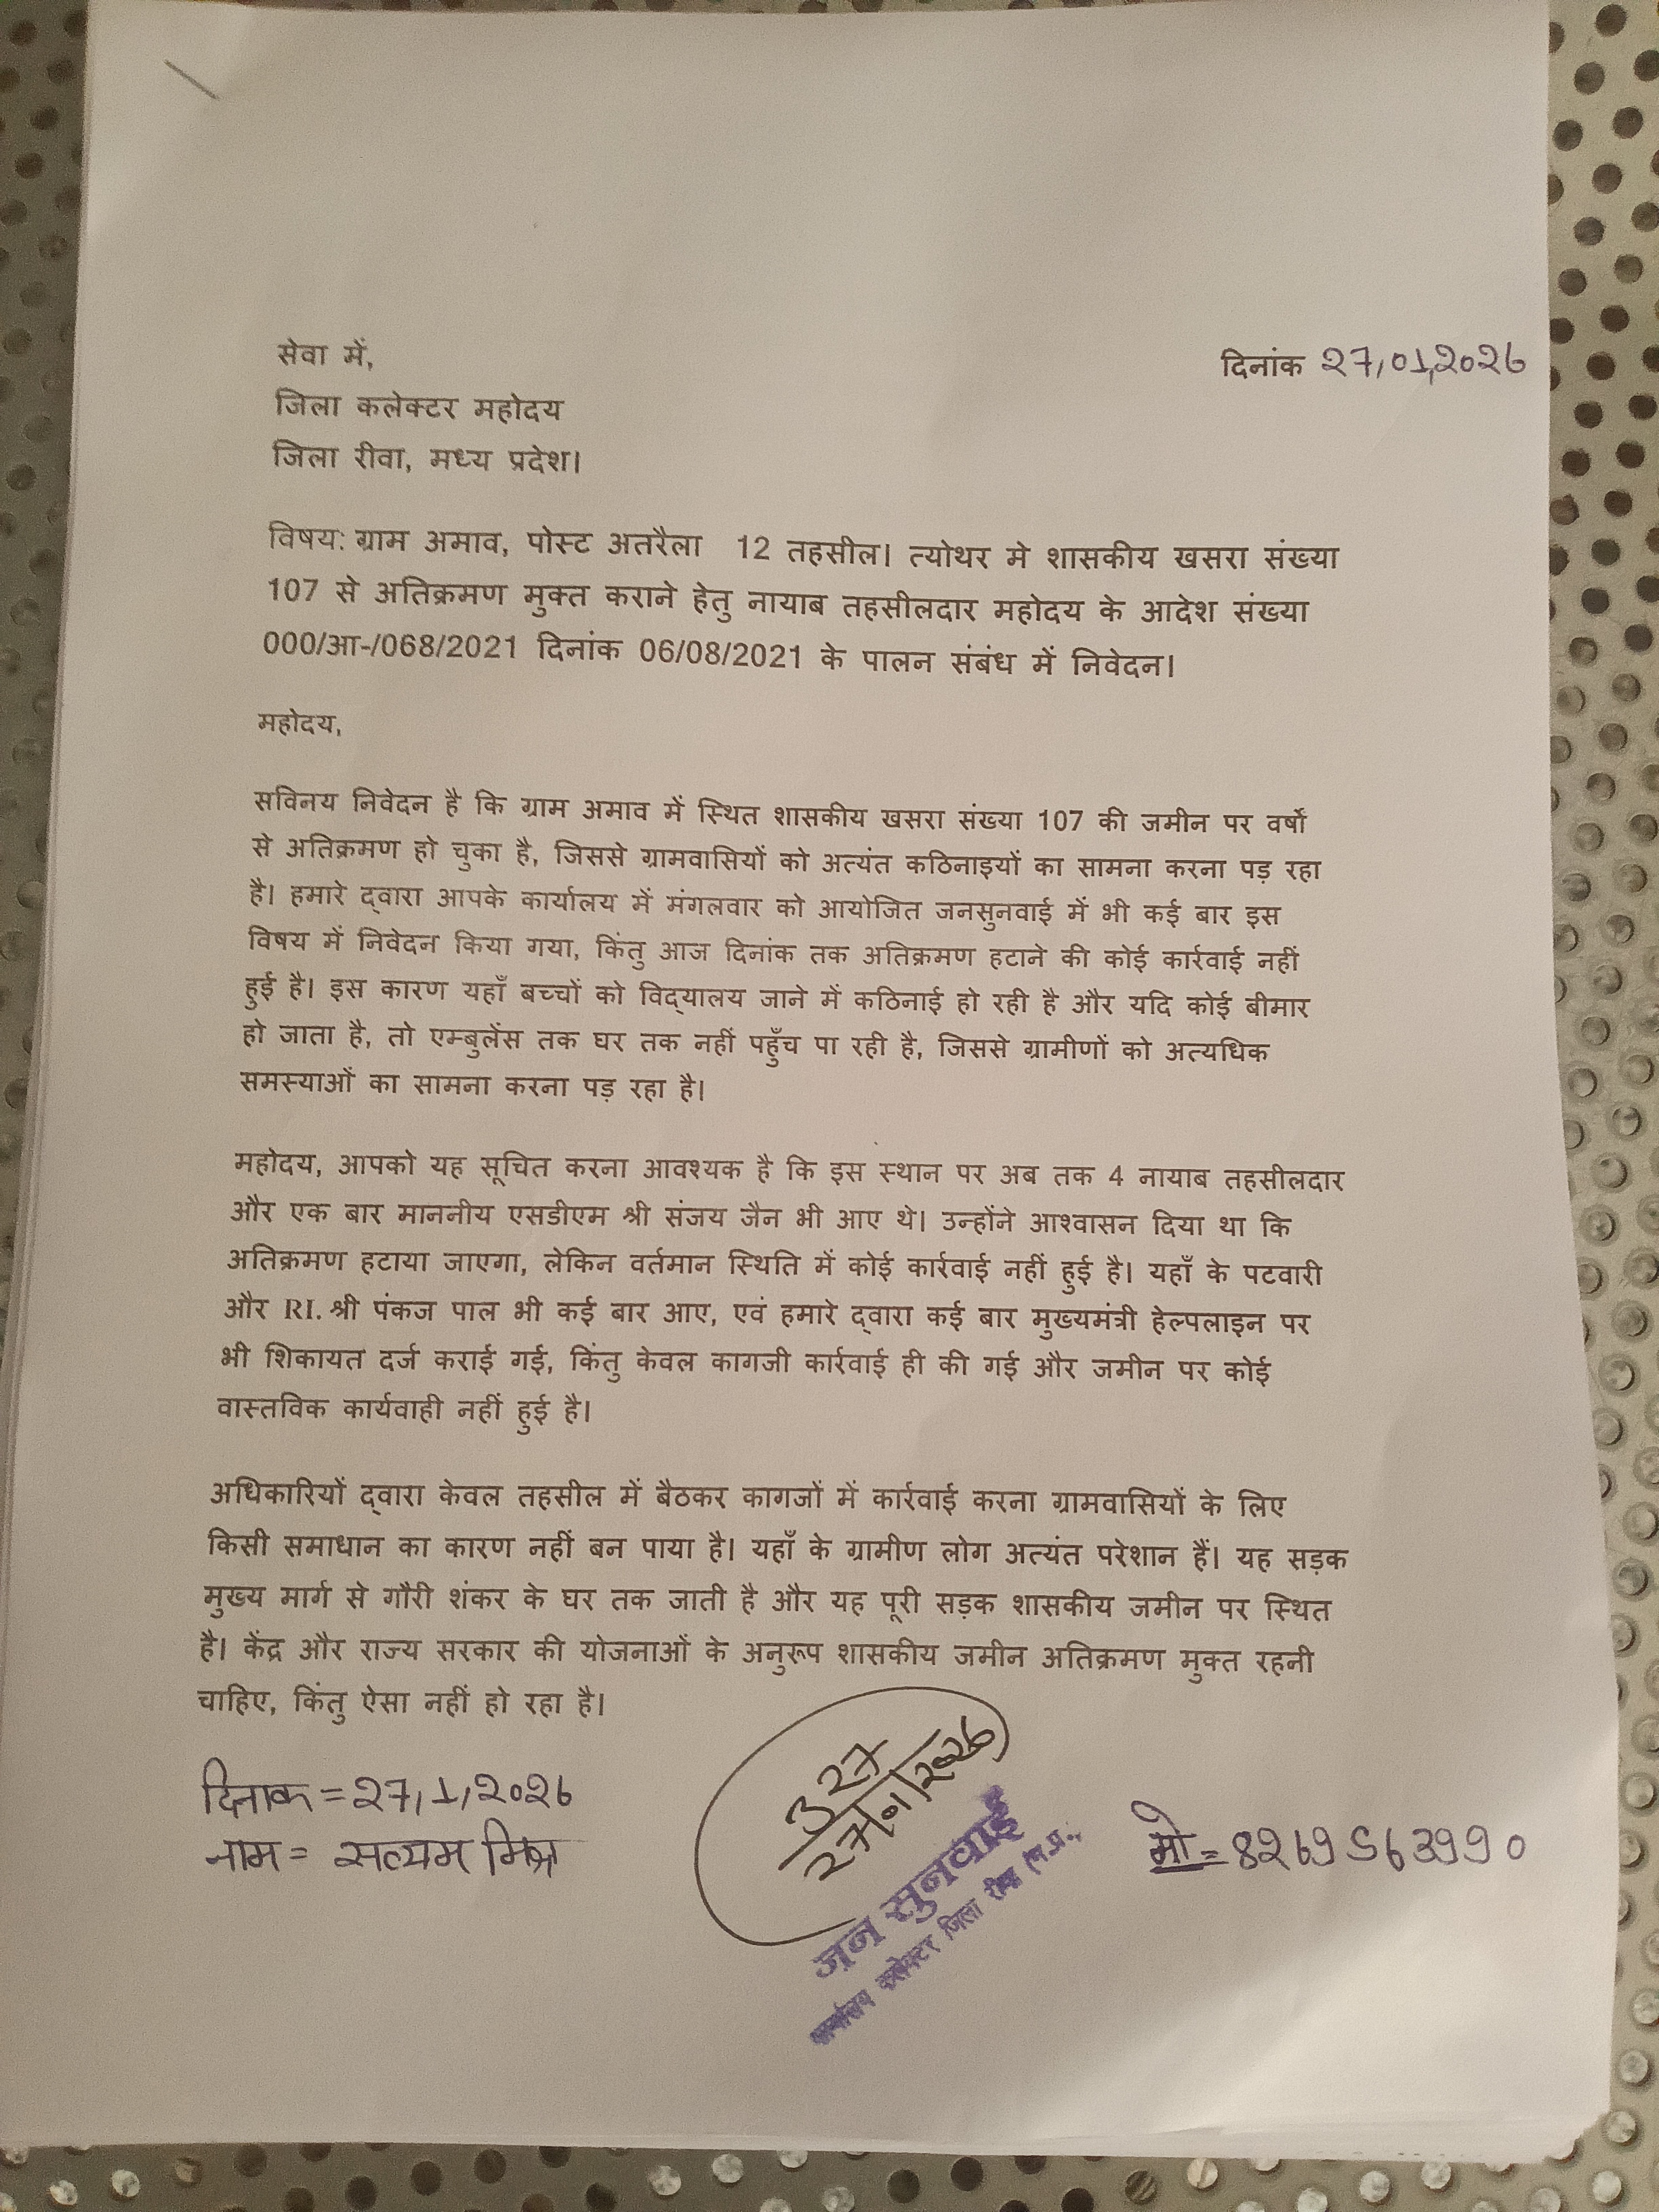 सेवा में,
दिनांक 27,01,2026
जिला कलेक्टर महोदय
जिला रीवा, मध्य प्रदेश।
विषय: ग्राम अमाव, पोस्ट अतरैला 12 तहसील। त्योथर मे शासकीय खसरा संख्या
107 से अतिक्रमण मुक्त कराने हेतु नायाब तहसीलदार महोदय के आदेश संख्या
000/आ-/068/2021 दिनांक 06/08/2021 के पालन संबंध में निवेदन।
महोदय,
सविनय निवेदन है कि ग्राम अमाव में स्थित शासकीय खसरा संख्या 107 की जमीन पर वर्षों
से अतिक्रमण हो चुका है, जिससे ग्रामवासियों को अत्यंत कठिनाइयों का सामना करना पड़ रहा
है। हमारे द्वारा आपके कार्यालय में मंगलवार को आयोजित जनसुनवाई में भी कई बार इस
विषय में निवेदन किया गया, किंतु आज दिनांक तक अतिक्रमण हटाने की कोई कार्रवाई नहीं
हुई है। इस कारण यहाँ बच्चों को विद्यालय जाने में कठिनाई हो रही है और यदि कोई बीमार
हो जाता है, तो एम्बुलेंस तक घर तक नहीं पहुँच पा रही है, जिससे ग्रामीणों को अत्यधिक
समस्याओं का सामना करना पड़ रहा है।
महोदय, आपको यह सूचित करना आवश्यक है कि इस स्थान पर अब तक 4 नायाब तहसीलदार
और एक बार माननीय एसडीएम श्री संजय जैन भी आए थे। उन्होंने आश्वासन दिया था कि
अतिक्रमण हटाया जाएगा, लेकिन वर्तमान स्थिति में कोई कार्रवाई नहीं हुई है। यहाँ के पटवारी
और RI. श्री पंकज पाल भी कई बार आए, एवं हमारे द्वारा कई बार मुख्यमंत्री हेल्पलाइन पर
भी शिकायत दर्ज कराई गई, किंतु केवल कागजी कार्रवाई ही की गई और जमीन पर कोई
वास्तविक कार्यवाही नहीं हुई है।
अधिकारियों द्वारा केवल तहसील में बैठकर कागजों में कार्रवाई करना ग्रामवासियों के लिए
किसी समाधान का कारण नहीं बन पाया है। यहाँ के ग्रामीण लोग अत्यंत परेशान हैं। यह सड़क
मुख्य मार्ग से गौरी शंकर के घर तक जाती है और यह पूरी सड़क शासकीय जमीन पर स्थित
है। केंद्र और राज्य सरकार की योजनाओं के अनुरूप शासकीय जमीन अतिक्रमण मुक्त रहनी
चाहिए, किंतु ऐसा नहीं हो रहा है।
दिनाक = 27,1,2026
नाम = सत्यम मिश्रा
मो = 8269563990
327
जन सुनवाई
कार्यालय कलेक्टर जिला रीवा (म.प्र.)